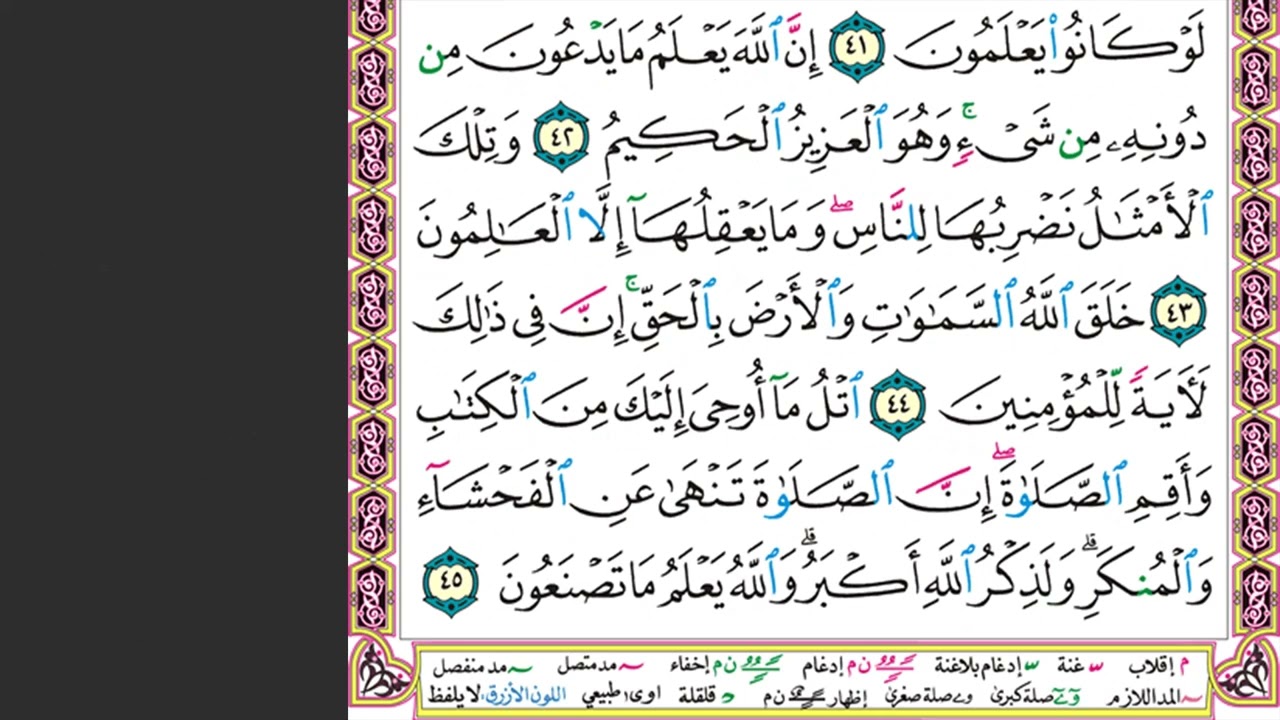 لَوْ كَانُوا۟ يَعْلَمُونَ ٤١ إِنَّ ٱللَّهَ يَعْلَمُ مَا يَدْعُونَ مِن
دُونِهِۦ مِن شَىْءٍۚ وَهُوَ ٱلْعَزِيزُ ٱلْحَكِيمُ ٤٢ وَتِلْكَ
ٱلْأَمْثَـٰلُ نَضْرِبُهَا لِلنَّاسِۖ وَمَا يَعْقِلُهَآ إِلَّا ٱلْعَـٰلِمُونَ
٤٣ خَلَقَ ٱللَّهُ ٱلسَّمَـٰوَٰتِ وَٱلْأَرْضَ بِٱلْحَقِّۚ إِنَّ فِى ذَٰلِكَ
لَـَٔايَةً لِّلْمُؤْمِنِينَ ٤٤ ٱتْلُ مَآ أُوحِىَ إِلَيْكَ مِنَ ٱلْكِتَـٰبِ
وَأَقِمِ ٱلصَّلَوٰةَۖ إِنَّ ٱلصَّلَوٰةَ تَنْهَىٰ عَنِ ٱلْفَحْشَآءِ
وَٱلْمُنكَرِۗ وَلَذِكْرُ ٱللَّهِ أَكْبَرُۗ وَٱللَّهُ يَعْلَمُ مَا تَصْنَعُونَ ٤٥
م إقلاب غنة إدغام بلاغنة ن م إدغام ن م إخفاء مد متصل مد منفصل
المد اللازم صلة كبرى صلة صغرى إظهار ن م قلقلة اوى طبيعي اللون الأزرق: لا يلفظ